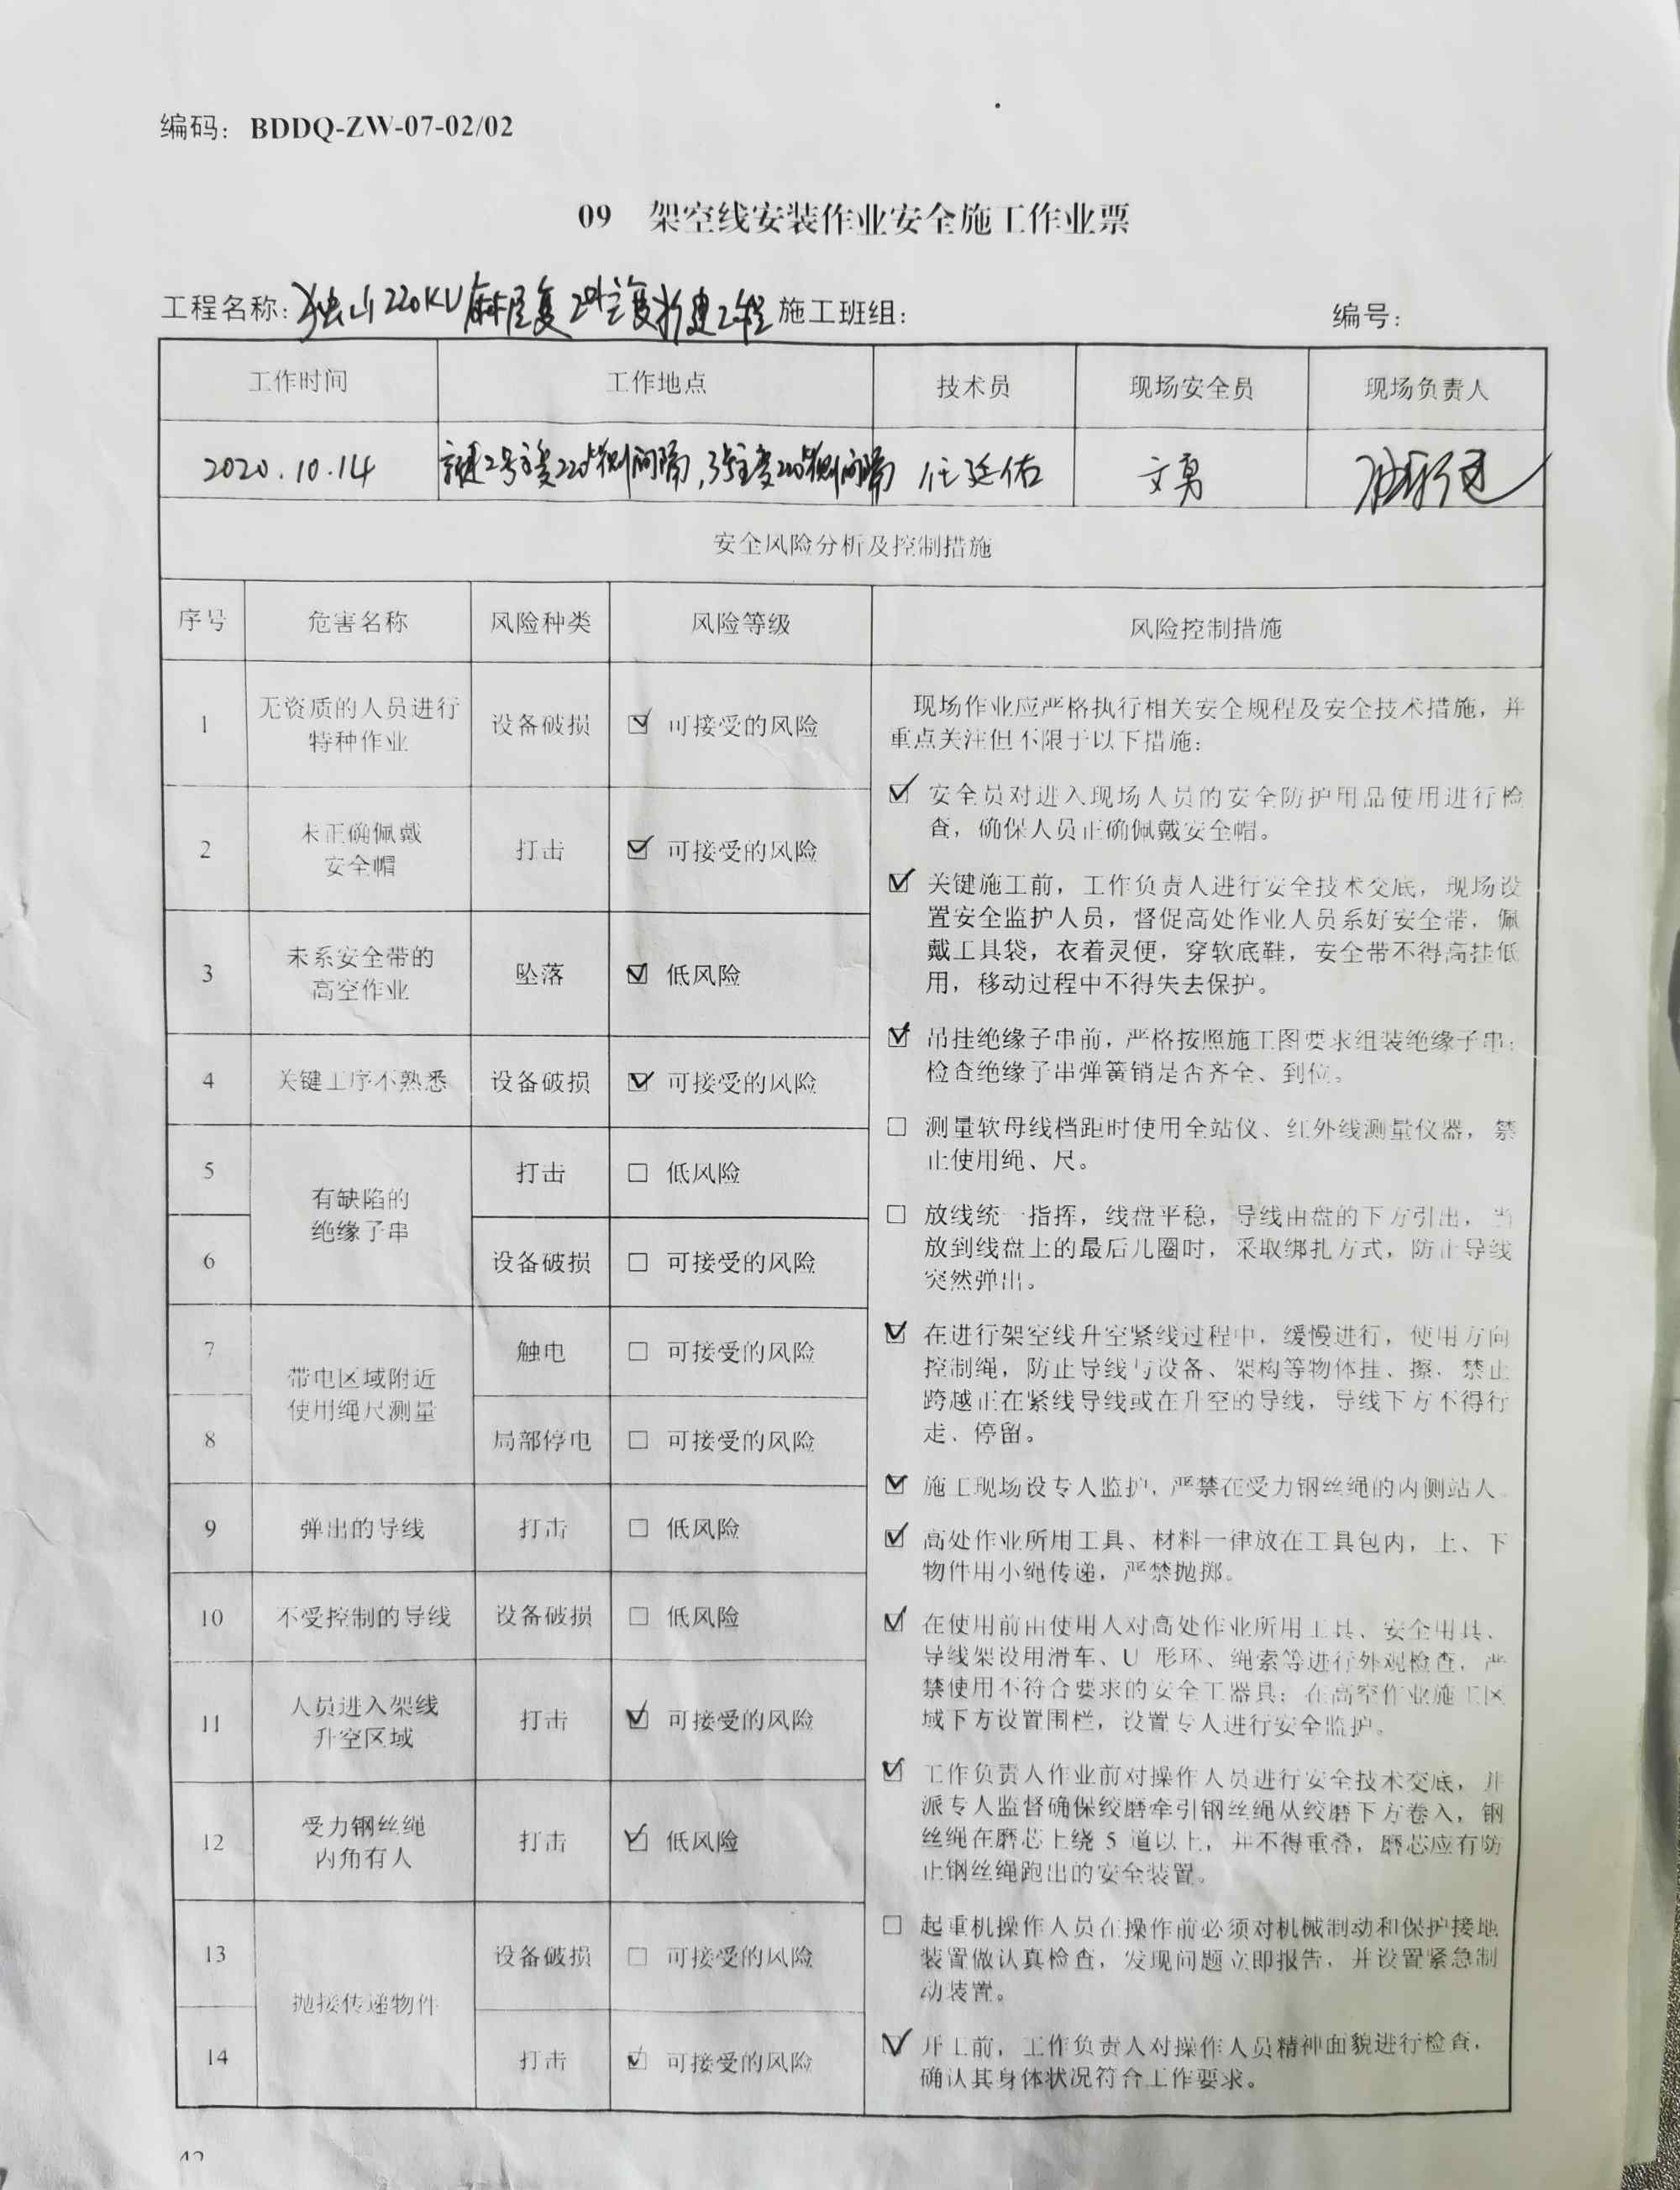 编码：BDDQ-ZW-07-02/02
09 架空线安装作业安全施工作业票
工程名称：独山220KV 施工班组： 编号：
工作时间 工作地点 技术员 现场安全员 现场负责人
2020.10.14 2号主变220侧间隔，3号主变220侧间隔 任廷佑 文勇
安全风险分析及控制措施
序号 危害名称 风险种类 风险等级 风险控制措施
1 无资质的人员进行 设备破损 ☑ 可接受的风险
特种作业
2 未正确佩戴 打击 ☑ 可接受的风险
安全帽
3 未系安全带的 坠落 ☑ 低风险
高空作业
4 关键工序不熟悉 设备破损 ☑ 可接受的风险
5 有缺陷的 打击 □ 低风险
绝缘子串
6 设备破损 □ 可接受的风险
7 带电区域附近 触电 □ 可接受的风险
使用绳尺测量
8 局部停电 □ 可接受的风险
9 弹出的导线 打击 □ 低风险
10 不受控制的导线 设备破损 □ 低风险
11 人员进入架线 打击 ☑ 可接受的风险
升空区域
12 受力钢丝绳 打击 ☑ 低风险
内角有人
13 抛接传递物件 设备破损 □ 可接受的风险
14 打击 ☑ 可接受的风险
现场作业应严格执行相关安全规程及安全技术措施，并
重点关注但不限于以下措施：
☑ 安全员对进入现场人员的安全防护用品使用进行检
查，确保人员正确佩戴安全帽。
☑ 关键施工前，工作负责人进行安全技术交底，现场设
置安全监护人员，督促高处作业人员系好安全带，佩
戴工具袋，衣着灵便，穿软底鞋，安全带不得高挂低
用，移动过程中不得失去保护。
☑ 吊挂绝缘子串前，严格按照施工图要求组装绝缘子串；
检查绝缘子串弹簧销是否齐全、到位。
□ 测量软母线档距时使用全站仪、红外线测量仪器，禁
止使用绳、尺。
□ 放线统一指挥，线盘平稳，导线由盘的下方引出，当
放到线盘上的最后几圈时，采取绑扎方式，防止导线
突然弹出。
☑ 在进行架空线升空紧线过程中，缓慢进行，使用方向
控制绳，防止导线与设备、架构等物体挂、擦，禁止
跨越正在紧线导线或在升空的导线，导线下方不得行
走、停留。
☑ 施工现场设专人监护，严禁在受力钢丝绳的内侧站人
☑ 高处作业所用工具、材料一律放在工具包内，上、下
物件用小绳传递，严禁抛掷。
☑ 在使用前由使用人对高处作业所用工具、安全用具、
导线架设用滑车、U 形环、绳索等进行外观检查，严
禁使用不符合要求的安全工器具；在高空作业施工区
域下方设置围栏，设置专人进行安全监护。
☑ 工作负责人作业前对操作人员进行安全技术交底，并
派专人监督确保绞磨牵引钢丝绳从绞磨下方卷入，钢
丝绳在磨芯上绕 5 道以上，并不得重叠，磨芯应有防
止钢丝绳跑出的安全装置。
□ 起重机操作人员在操作前必须对机械制动和保护接地
装置做认真检查，发现问题立即报告，并设置紧急制
动装置。
☑ 开工前，工作负责人对操作人员精神面貌进行检查，
确认其身体状况符合工作要求。